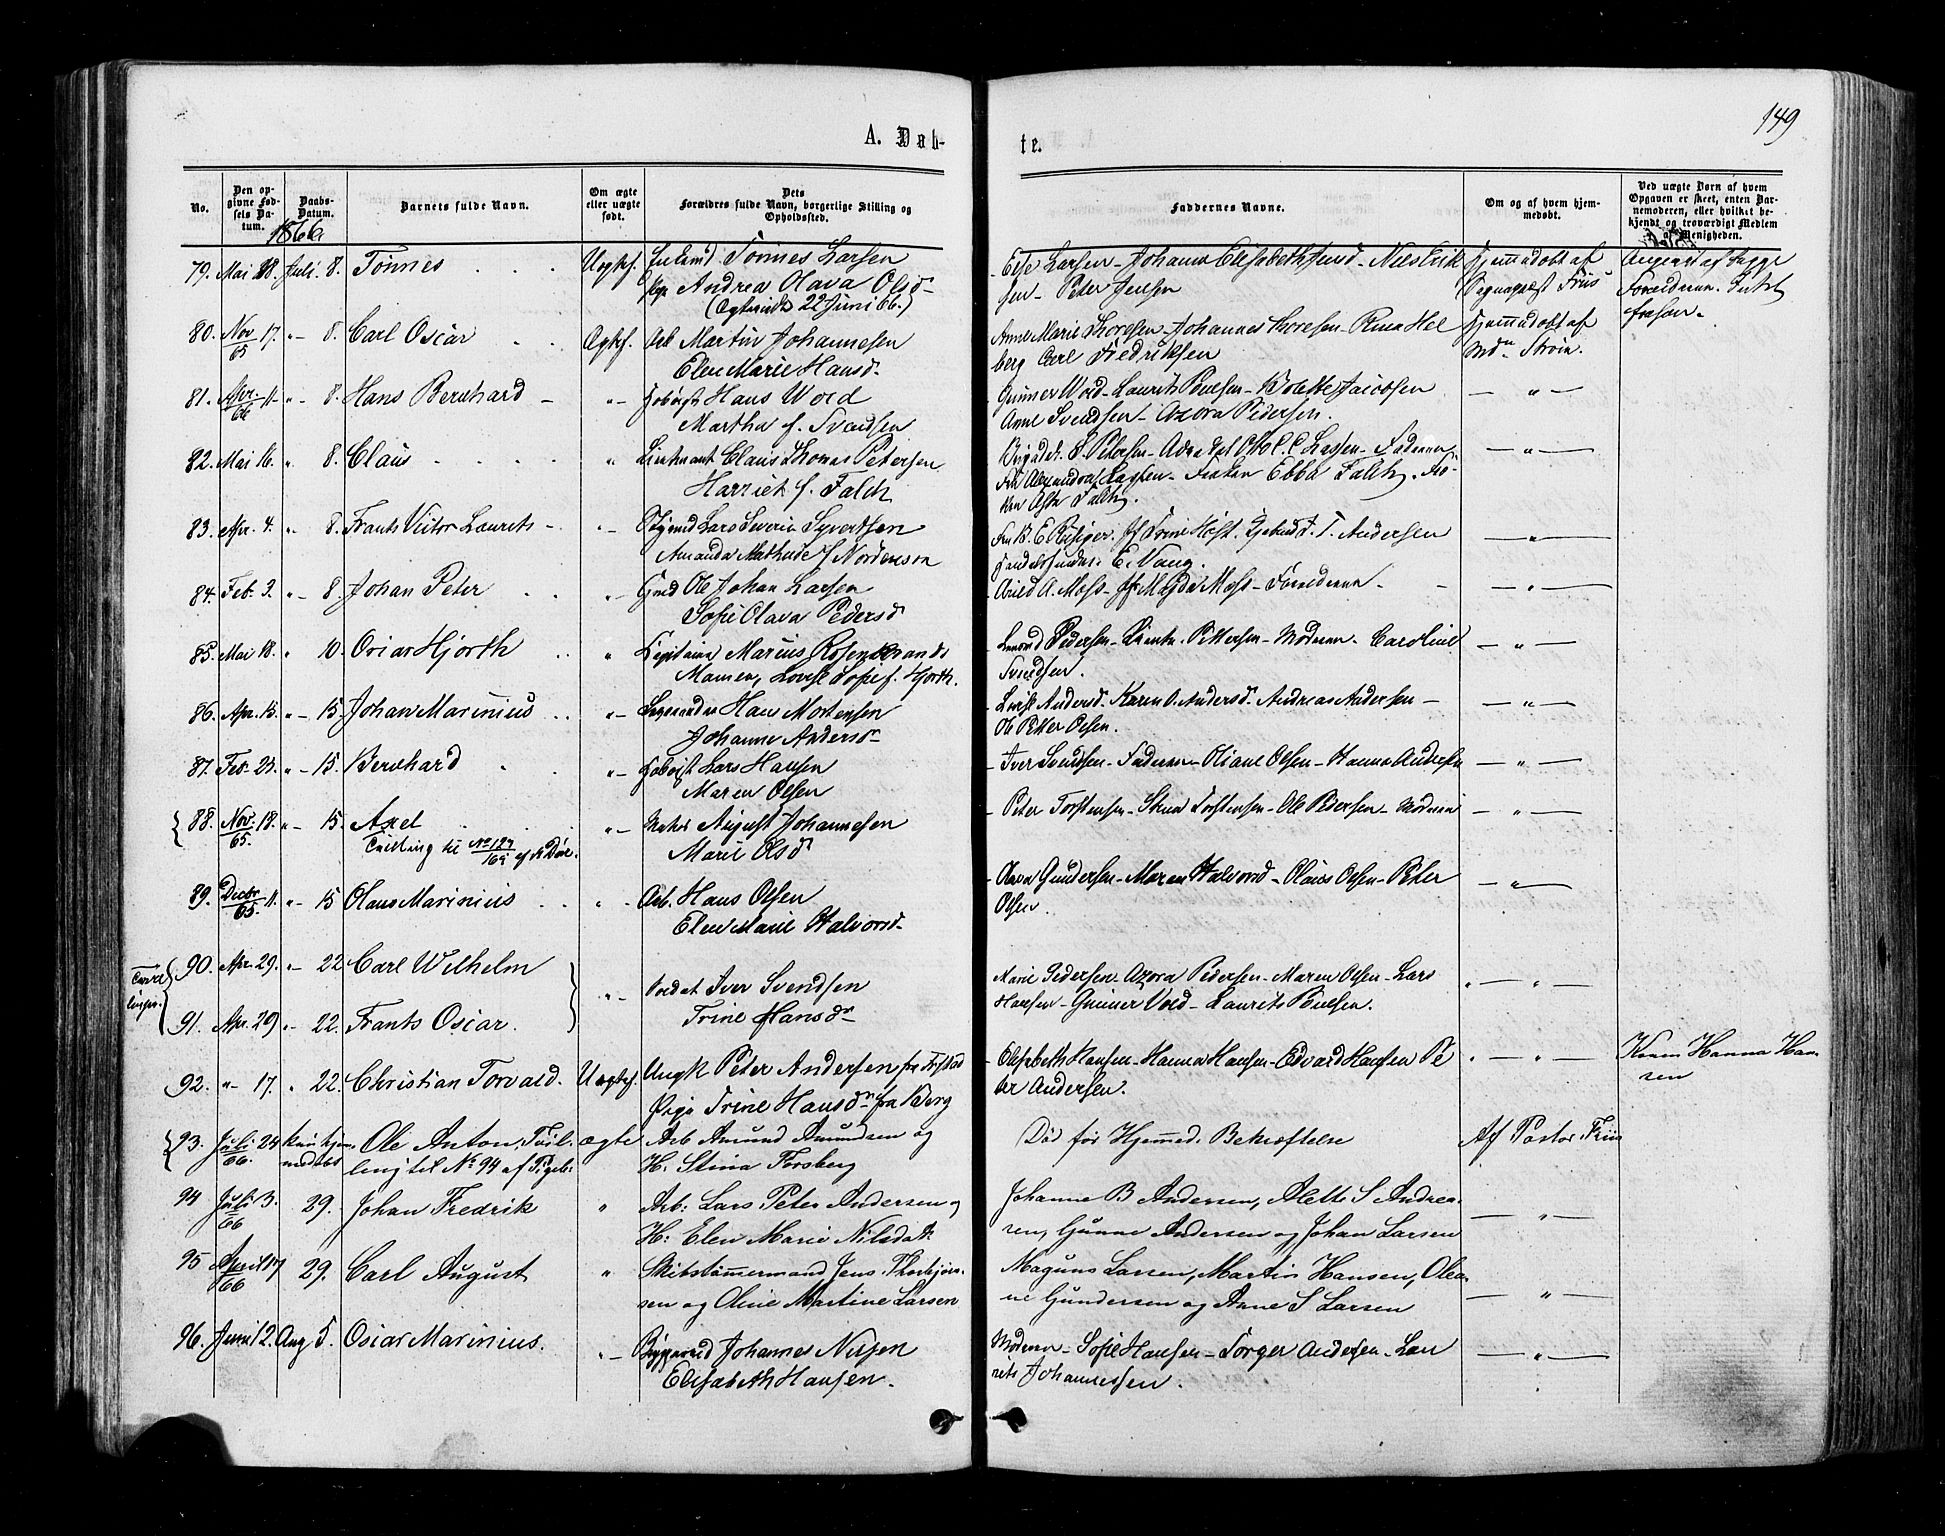 149
A. Døb-
te.
No.
Den op-
givne Fød-
sels Da-
tum.
Daabs-
Datum.
Barnets fulde Navn.
Om ægte
eller uægte
født.
Dets
Forældres fulde Navn, borgerlige Stilling og
Opholdssted.
Faddernes Navne.
Om og af hvem hjem-
medøbt.
Ved uægte Børn af hvem
Opgaven er skeet, enten Bar-
nemoderen, eller hvilket be-
kjendt og troværdigt Medlem
af Menigheden.
1866
79. Mai 28. Juli 8. Tønnes Uægtef. Tønnes Larsen
Andrea Olava Olsd
(Egteviede 22 Juni 66.)
Else Larsen - Johanne Elisabeth - Nils Erik
sen - Peter Jensen
Hjemmedøbt af
Sognepræst Friis
Angivet af begge
Forældrene.
80. Nov/65 17. " 8. Carl Oscar Ægtef. Arb Martin Johannesen
Elen Marie Hansd.
Anne Marie Thoresen - Johannes Thoresen - Hel
berg Carl Fredriksen
Hjemmedøbt af
81. Apr/66 11 " 8. Hans Bernhard " Hans Wold
Martha f. Svendsen
Gunner Wold - Laurits Poulsen - Bolette Jacobsen
Anne Svendsen - Azora Pedersen.
— " —
82. Mai 16. " 8. Claus " Lieutnant Claus Thomas Petersen
Harriet f. Falch
Petersen - Lassen - Faderen
Alexandra Lassen - Frøken Ebba Falch. Frø-
ken Falch.
— " —
83. Apr. 4. " 8. Frants Victor Laurits " Lars Severin Syvertsen
Amanda Mathilde f Nordenson
T. Andersen
E. Vang.
— " —
84. Feb. 3. " 8. Johan Peter " Ole Johan Larsen
Sofie Olava Pedersd
A. Moss - Magda Moss - Forældrene
— " —
85. Mai 18. " 10. Oscar Hjorth " Marius Rosenkrands
Lovise Sofie f. Hjorth.
Pedersen - Pettersen - Moderen. Caroline
Svendsen.
— " —
86. Apr. 15. " 15. Johan Marinius " Hans Mortensen
Johanne Andersd
Lovise Andersd. Karen O. Andersd. Andreas Andersen
Ole Petter Olsen.
— " —
87. Feb. 23. " 15. Bernhard " Lars Hansen
Maren Olsen
Iver Svendsen - Faderen - Oliane Olsen - Hanna Andresen
— " —
88. Nov./65. 18. " 15. Axel " August Johannesen
Tvilling til No 129/169 af K Døbt.
Marie Olsd
Peter Torstensen - Torstensen - Ole Pedersen - Moderen
— " —
89. Decbr/65. 11. " 15 Olaus Marinius " Arb. Hans Olsen
Elen Marie Halvorsd.
Olava Gundersen - Maren Halvorsd - Olaus Olsen - Peter
Olsen.
— " —
Tvil
linger.
90. Apr. 29. " 22 Carl Wilhelm
" Iver Svendsen
Trine Hansd
91. Apr. 29 " 22. Frants Oscar.
Marie Pedersen - Azora Pedersen - Maren Olsen - Lars
Hansen - Gunner Wold - Laurits Poulsen.
— " —
92. " 17. " 22. Christian Torvald. Uægtef. Ungk Peter Andersen fra
Pige Trine Hansd fra Berg
Elisabeth Hansen - Hanna Hansen - Edvard Hansen Pe
ter Andersen.
— " —
Hanna Han-
sen
93. Juli/66. 24 kun hjem-
medøbt
Ole Anton, Tvil-
ling til No 94 af Pigeb:
ægte Arb Amund Amundsen og
H: Stina Forsberg
Død før Hjemmed. Bekræftelse
Af Pastor Friis
94 Juli/66 3. 29. Johan Fredrik " Arb: Lars Peter Andersen og
H: Elen Marie Nilsdatt.
Johanne B Andersen, Alette S Andrea-
sen, Gunne Andersen og Johan Larsen
— " —
95 April/66 17 29. Carl August " Skibstømmermand Jens Thorbjørn-
sen og Oline Martine Larsen
Magnus Larsen, Martin Hansen, Olea-
ne Gundersen og Anne S Larsen
— " —
96. Juni 12. Aug 5. Oscar Marinius. " Johannes Nilsen
Elisabeth Hansen.
Moderen - Sofie Hansen - Torger Andersen - Lau
rits Johannessen.
— " —